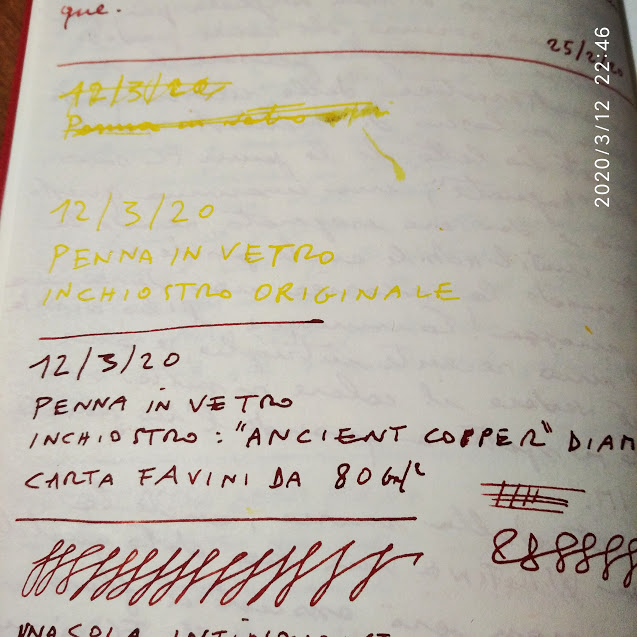 que.
25/2/20
12/3/20
Penna in vetro
12/3/20
PENNA IN VETRO
INCHIOSTRO ORIGINALE
12/3/20
PENNA IN VETRO
INCHIOSTRO: "ANCIENT COPPER" DIAM
CARTA FAVINI DA 80 Gr/
UNA SOLA
2020/3/12 22:46